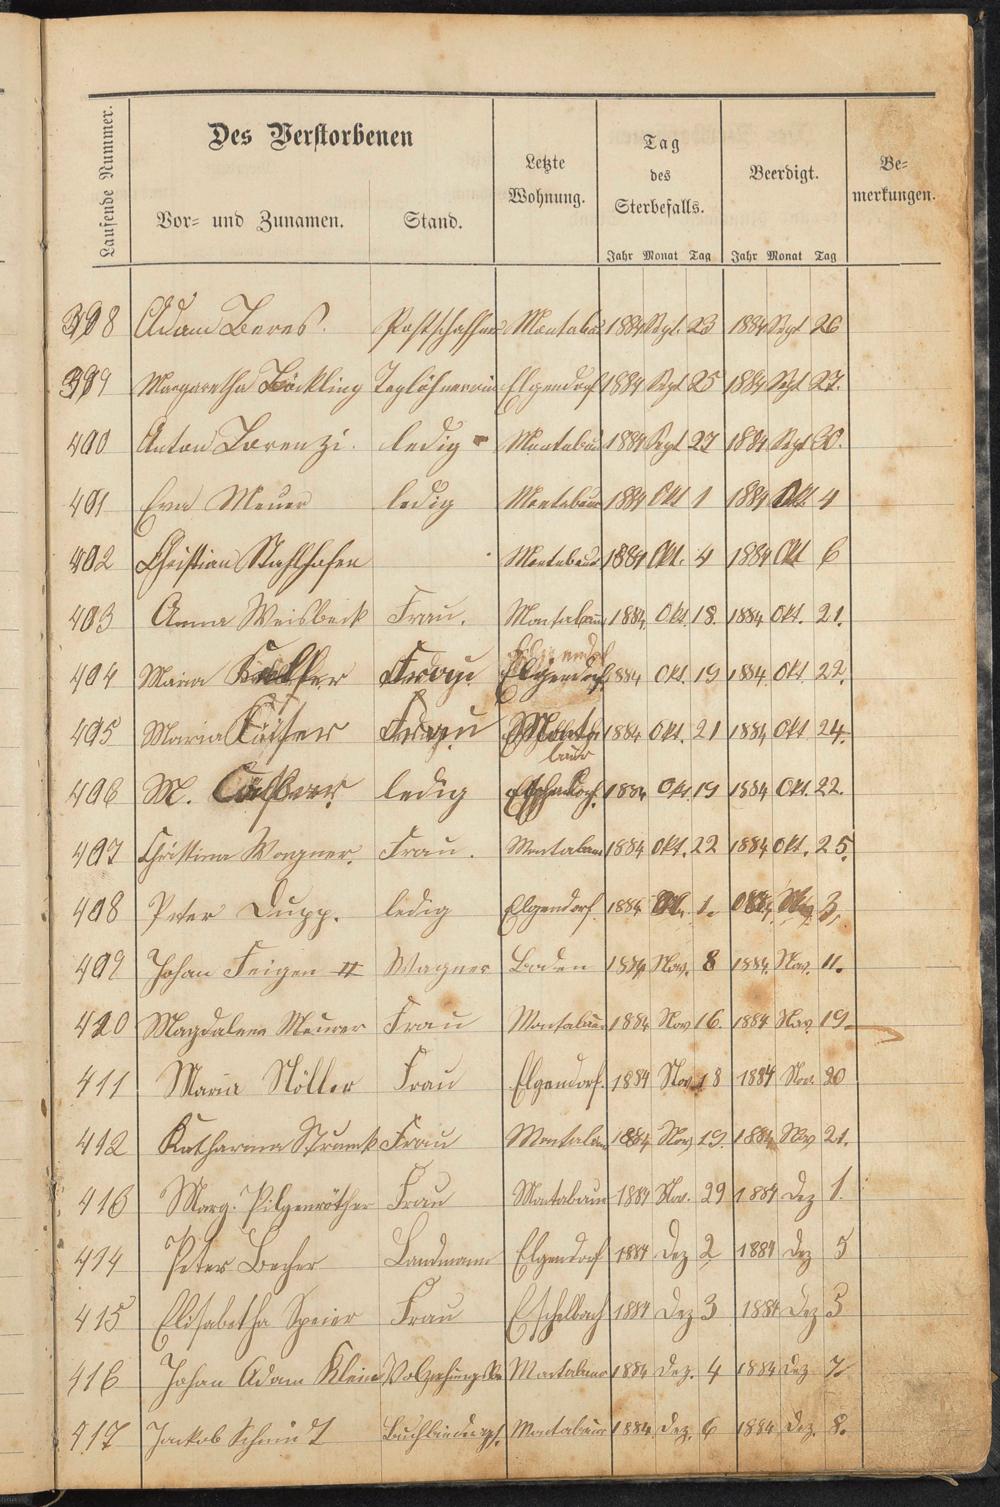 Laufende Nummer.
Des Verstorbenen
Vor- und Zunamen. Stand.
Letzte Wohnung.
Tag des Sterbefalls.
Beerdigt.
Be-merkungen.
Jahr Monat Tag Jahr Monat Tag
398 Adam Beres. Postschaffner Montabaur 1884 Sept. 23 1884 Sept 26
399 Margaretha Böckling Taglöhnerin Elgendorf 1884 Sept 25 1884 Sept 27.
400 Anton Lorenzi. ledig Montabaur 1884 Sept 27 1884 Sept 30.
401 Eva Meuer ledig Montabaur 1884 Okt 1 1884 Okt. 4
402 Christian Stahlhofen Montabaur 1884 Okt. 4 1884 Okt 6
403 Anna Weisbeck Frau. Montabaur 1884 Okt. 18. 1884 Okt. 21.
404 Maria Frau Elgendorf 1884 Okt. 19 1884 Okt. 22.
405 Maria Kaiser Frau Montabaur 1884 Okt. 21 1884 Okt 24.
406 M. ledig 1884 Okt. 19 1884 Okt. 22.
407 Christina Wagner. Frau. Montabaur 1884 Okt. 22 1884 Okt. 25.
408 Peter Dupp. ledig Elgendorf. 1884 1. 1884 Nov. 3.
409 Johan Feigen II Wagner Baden 1884 Nov. 8 1884 Nov. 11.
410 Magdalena Meurer Frau Montabaur 1884 Nov 16. 1884 Nov. 19.
411 Maria Nöller Frau Elgendorf. 1884 Nov 18 1884 Nov. 20
412 Katharina Strunk Frau Montabaur 1884 Nov 19. 1884 Nov 21.
413 Marg. Pilgenröther Frau Montabaur 1884 Nov. 29 1884 Dez 1.
414 Peter Becher Landmann Elgendorf 1884 Dez 2 1884 Dez 5
415 Elisabetha Speier Frau Eschelbach 1884 Dez 3 1884 Dez 5
416 Johan Adam Klein Montabaur 1884 Dez. 4 1884 Dez 7.
417 Jackob Schmidt Montabaur 1884 Dez. 6 1884 Dez. 8.